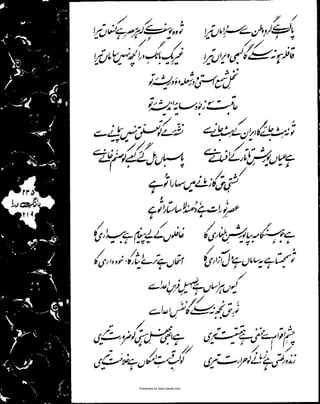 پاک ہے گردِ وطن سے سرِ داماں تیرا
تو وہ یوسف ہے کہ ہر مصر ہے کنعاں تیرا
قافلہ ہو نہ سکے گا کبھی ویراں تیرا
غیر یک بانگِ درا کچھ نہیں ساماں تیرا
نخلِ شمع استی و در شعلہ دود ریشۂ تو
عاقبت سوز بود سایۂ اندیشۂ تو
تو نہ مٹ جائے گا ایران کے مٹ جانے سے
نشۂ مے کو تعلق نہیں پیمانے سے
ہے عیاں یورشِ تاتار کے افسانے سے
پاسباں مل گئے کعبے کو صنم خانے سے
کشتیِ حق کا زمانے میں سہارا تو ہے
عصرِ نو رات ہے، دھندلا سا ستارا تو ہے
ہے جو ہنگامہ بپا یورشِ بلغاری کا
غافلوں کے لیے پیغام ہے بیداری کا
تو سمجھتا ہے یہ ساماں ہے دل آزاری کا
امتحاں ہے ترے ایثار کا، خودداری کا
کیوں ہراساں ہے صہیلِ فرسِ اعدا سے
نورِ حق بجھ نہ سکے گا نفسِ اعدا سے
چشمِ اقوام سے مخفی ہے حقیقت تیری
ہے ابھی محفلِ ہستی کو ضرورت تیری
زندہ رکھتی ہے زمانے کو حرارت تیری
کوکبِ قسمتِ امکاں ہے خلافت تیری
۲۳۵
بانگِ درا
۲۱۹